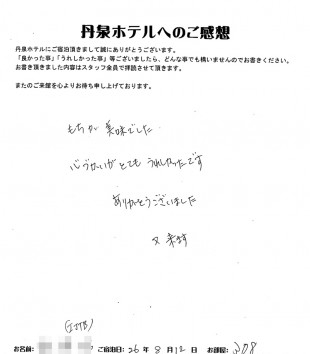 丹泉ホテルへのご感想
丹泉ホテルにご宿泊頂きまして誠にありがとうございます。
「良かった事」「うれしかった事」等ございましたら、どんな事でも構いませんのでお書きください。
お書き頂きました内容はスタッフ全員で拝読させて頂きます。
またのご来館を心よりお待ち申し上げております。
もちが 美味でした
心づかいが とても うれしかったです
ありがとうございました
又 来ます
お名前: ご宿泊日: 26 年 8 月 12 日 お部屋: 208